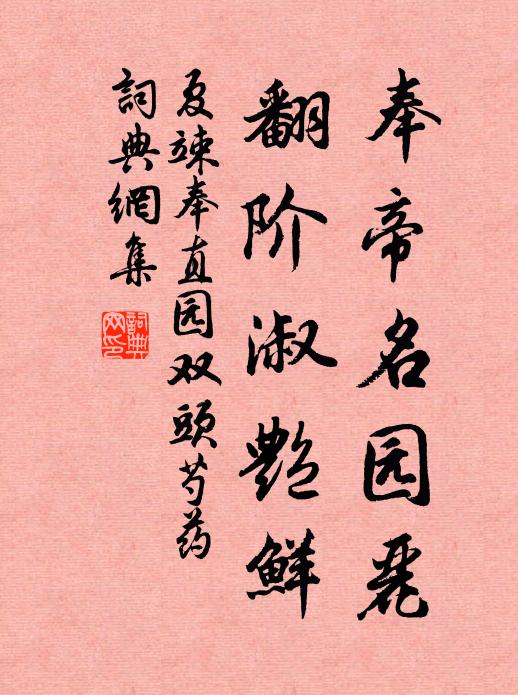 奉帝名园丽
翻阶淑艳鲜
夏竦奉直园双头芍药
詞典網集
詞典網印